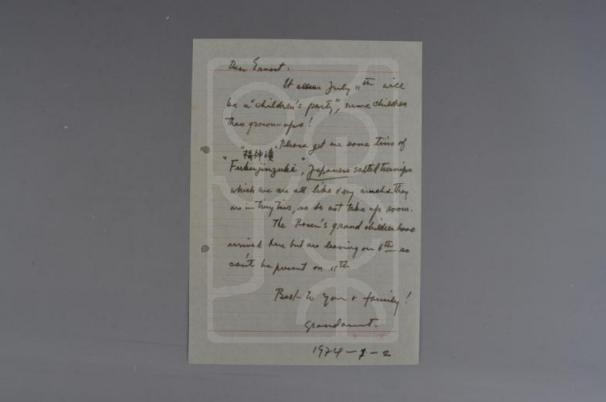 Dear Ernest.
It July 11th will
be a "children's party", more children
than grown ups!
Please get me some tins of
"Fukujinzuke", Japanese salted turnips
which we are all like very much. They
are in tiny tins, so do not take up room.
The Rosen's grand children have
arrived here but are leaving on 6th so
can't be present on 11th
Best to you & family!
Grandaunt.
1974-7-2